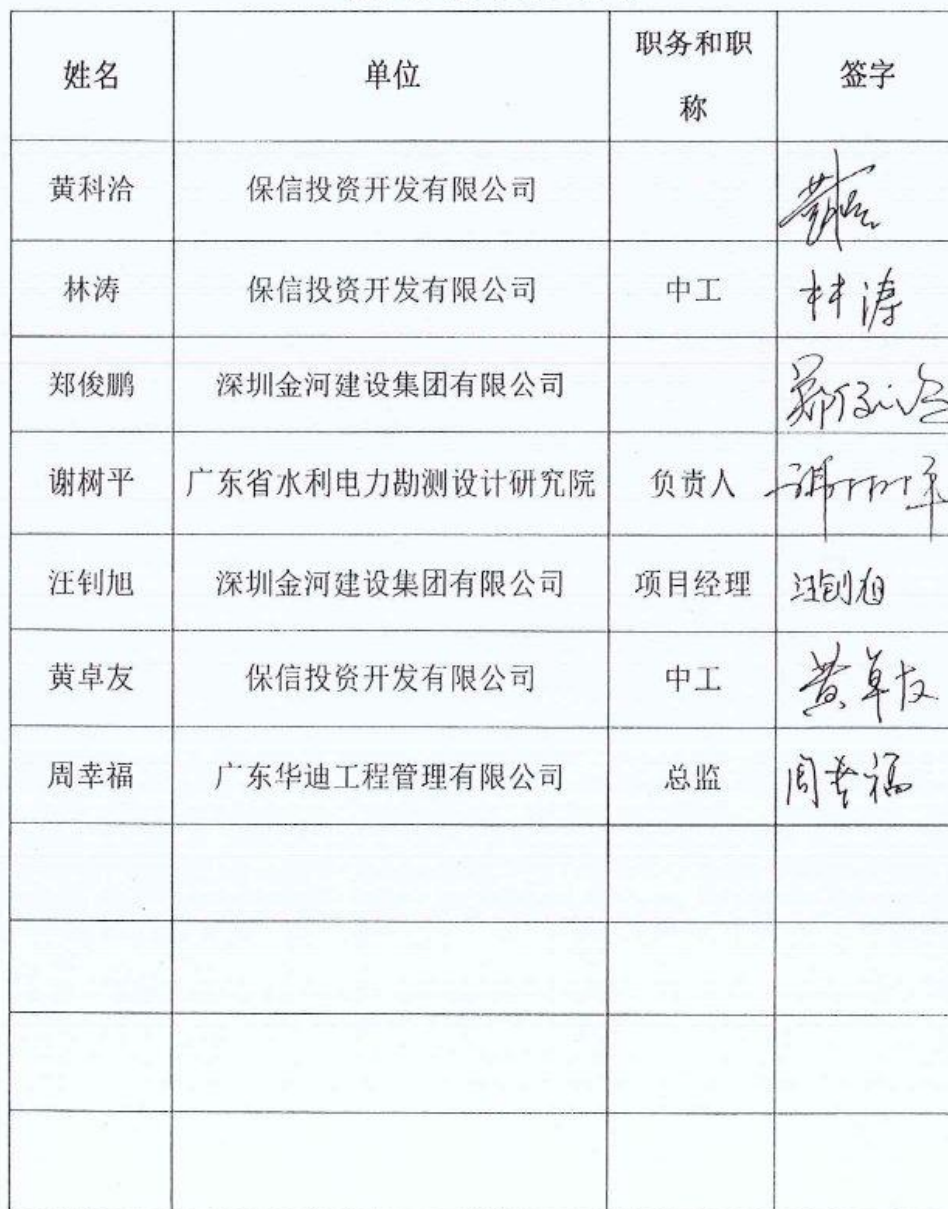 姓名 单位 职务和职称 签字
黄科治 保信投资开发有限公司
林涛 保信投资开发有限公司 中工 林涛
郑俊鹏 深圳金河建设集团有限公司
谢树平 广东省水利电力勘测设计研究院 负责人 谢树平
汪钊旭 深圳金河建设集团有限公司 项目经理 汪钊旭
黄卓友 保信投资开发有限公司 中工 黄卓友
周幸福 广东华迪工程管理有限公司 总监 周幸福